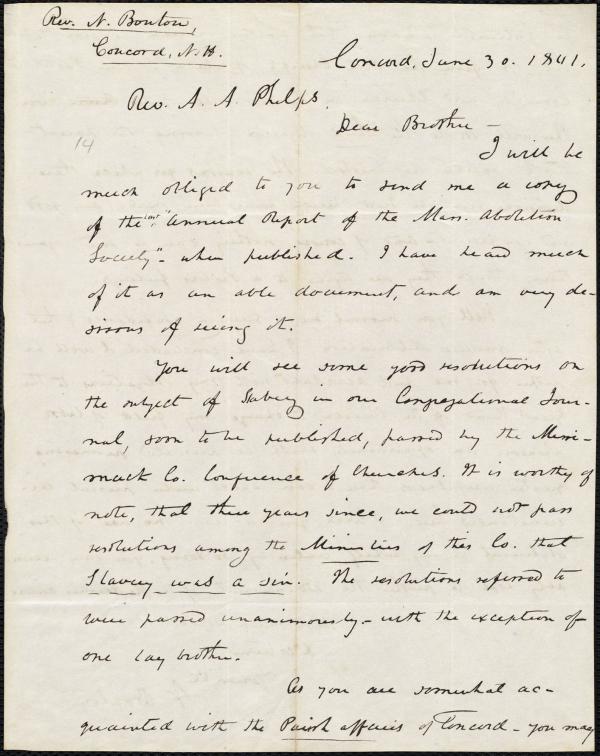 Rev. N. Bouton,
Concord, N.H.
Concord, June 30. 1841.
Rev. A. A. Phelps.
Dear Brother -
14
I will be
much obliged to you to send me a copy
of the "last" Annual Report of the Mass. Abolition
Society" - when published. I have heard much
of it as an able document, and am very de-
sirous of seeing it.
You will see some good resolutions on
the subject of Slavery in our Congregational Jour-
nal, soon to be published, passed by the Merri-
mack Co. Conference of Churches. It is worthy of
note, that three years since, we could not pass
resolutions among the Ministers of this Co. that
Slavery was a sin. The resolutions referred to
were passed unanimously - with the exception of
one lay brother.
As you are somewhat ac-
quainted with the Parish affairs of Concord - you may